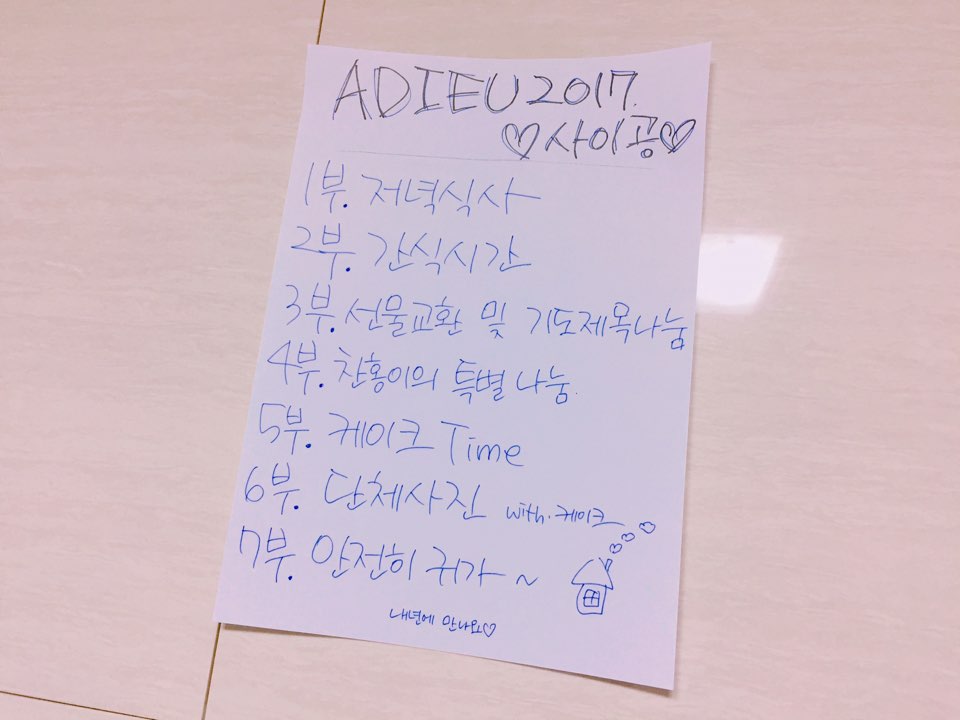 ADIEU 2017.
♡사이공♡
1부. 저녁식사
2부. 간식시간
3부. 선물교환 및 기도제목나눔
4부. 찬홍이의 특별 나눔.
5부. 케이크 Time
6부. 단체사진 with. 케이크
7부. 안전히 귀가 ~
내년에 만나요♡